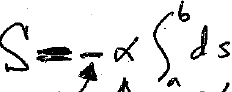 S = - α ∫ₐᵇ ds